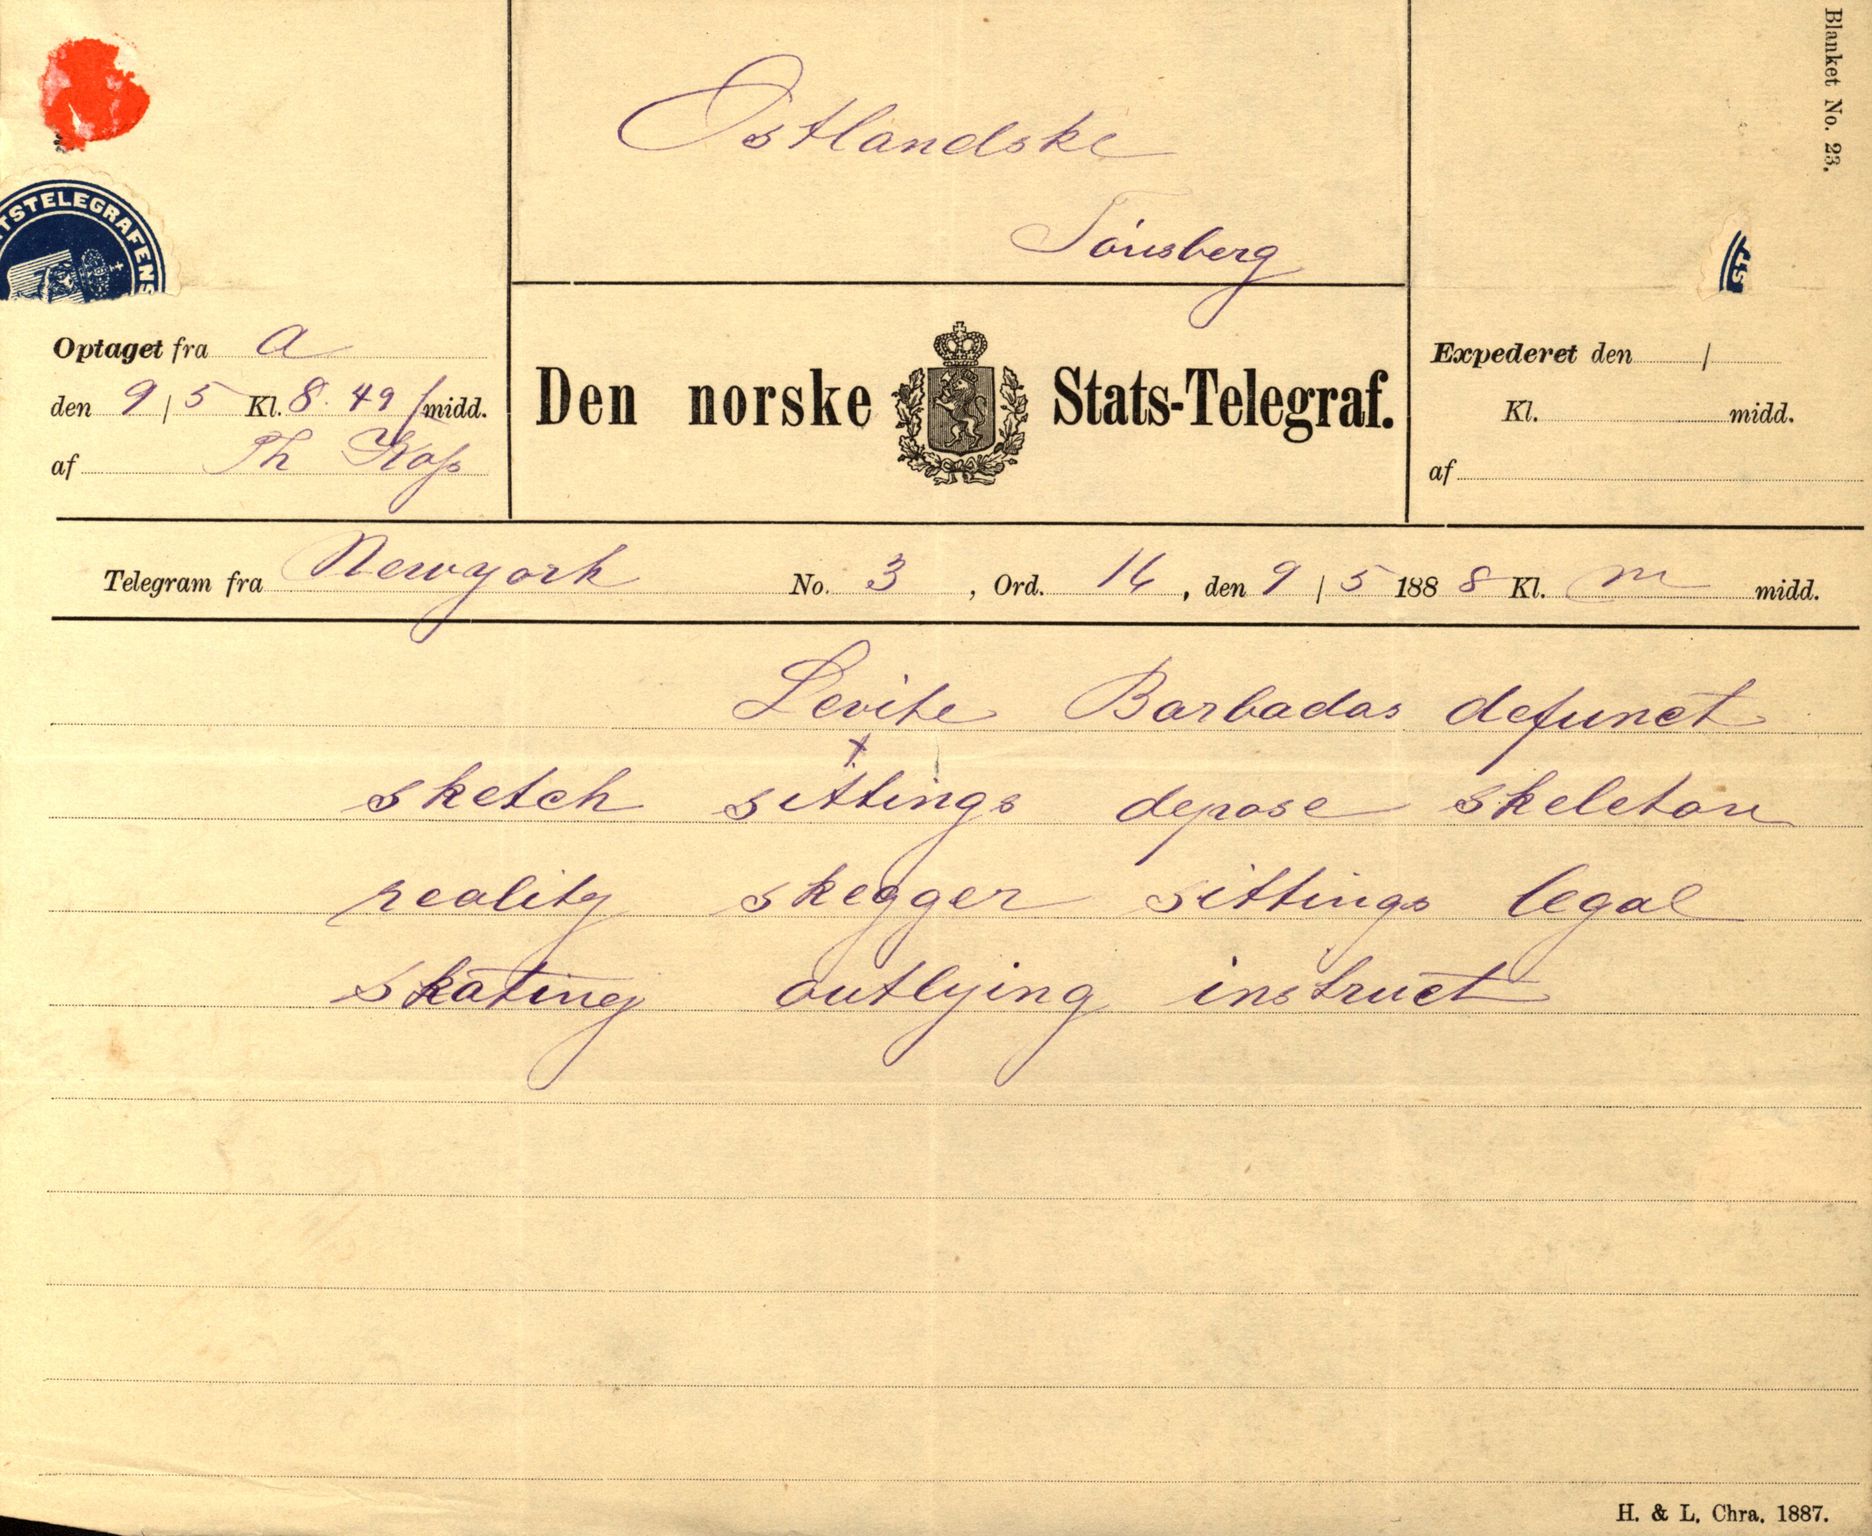 Blanket No. 23.
Ostlandske
Tönsberg
TSTELEGRAFENS
Optaget fra a
den 9/5 Kl. 8.49 / midd.
af Th
Den norske Stats-Telegraf.
Expederet den /
Kl. midd.
af
Telegram fra Newyork No. 3, Ord. 16, den 9/5 1888 Kl. m midd.
Levite Barbados defunct
sketch sittings depose skeleton
reality skegger sittings legal
skating outlying instruct
H. & L. Chra. 1887.